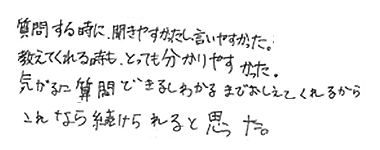 質問する時に、聞きやすかったし言いやすかった。
教えてくれる時も、とっても分かりやすかった。
気がるに質問できるしわかるまでおしえてくれるから
これなら続けられると思った。